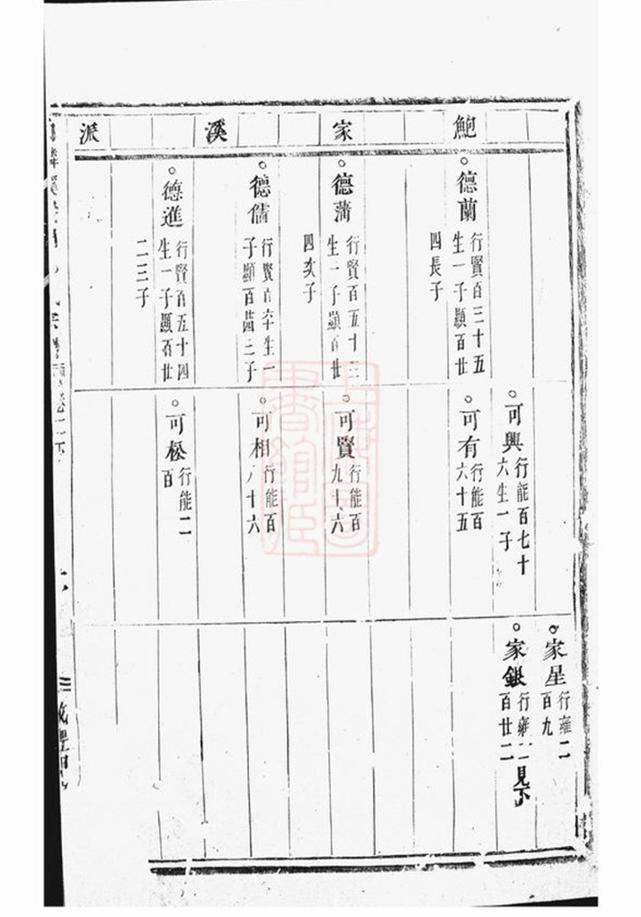 鮑家溪派
德蘭
行賢百三十五
生一子顯百廿
四長子
德蒲
行賢百五十三
生一子顯百廿
四次子
德儒
子顯百
德進
行賢百五十四
生一子顯百廿
二三子
可興
行能百七十
六生一子
可有
行能百
六十五
可賢
行能百
九十六
可相
行能百
八十六
可松
行能二
百
家星
行雍二
百九
家銀
行雍二
百廿二
見下